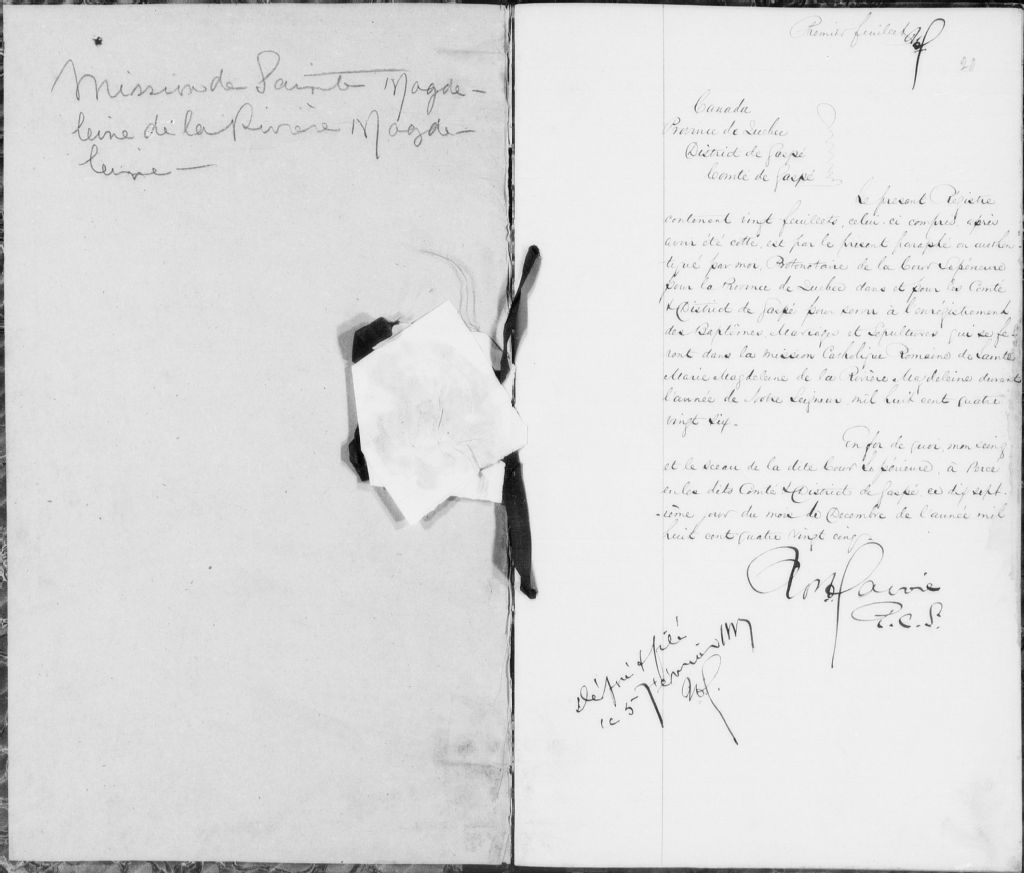 Mission de Sainte Magde-
leine de la Rivière Magde-
leine —
Premier feuillet
20
Canada
Province de Quebec
District de Gaspé
Comté de Gaspé
Le present Régistre
contenant vingt feuillets, celui-ci compris, après
avoir été cotté, est par le présent paraphé ou authen-
tiqué par moi, Protonotaire de la Cour Supérieure
pour la Province de Quebec dans et pour les Comté
& District de Gaspé pour servir à l'enrégistrement
des Baptêmes, Mariages et Sépultures qui se fe-
ront dans la mission Catholique Romaine de Sainte
Marie Magdeleine de la Rivière Magdeleine durant
l'année de Notre Seigneur mil huit cent quatre
vingt six.
En foi de quoi, mon seing
et le sceau de la dite Cour Supérieure, à Percé
en les dits Comté & District de Gaspé ce dix sept-
ième jour du mois de Decembre de l'année mil
huit cent quatre vingt cinq.
P.C.S.
Délivré & filé
ce 5 Février